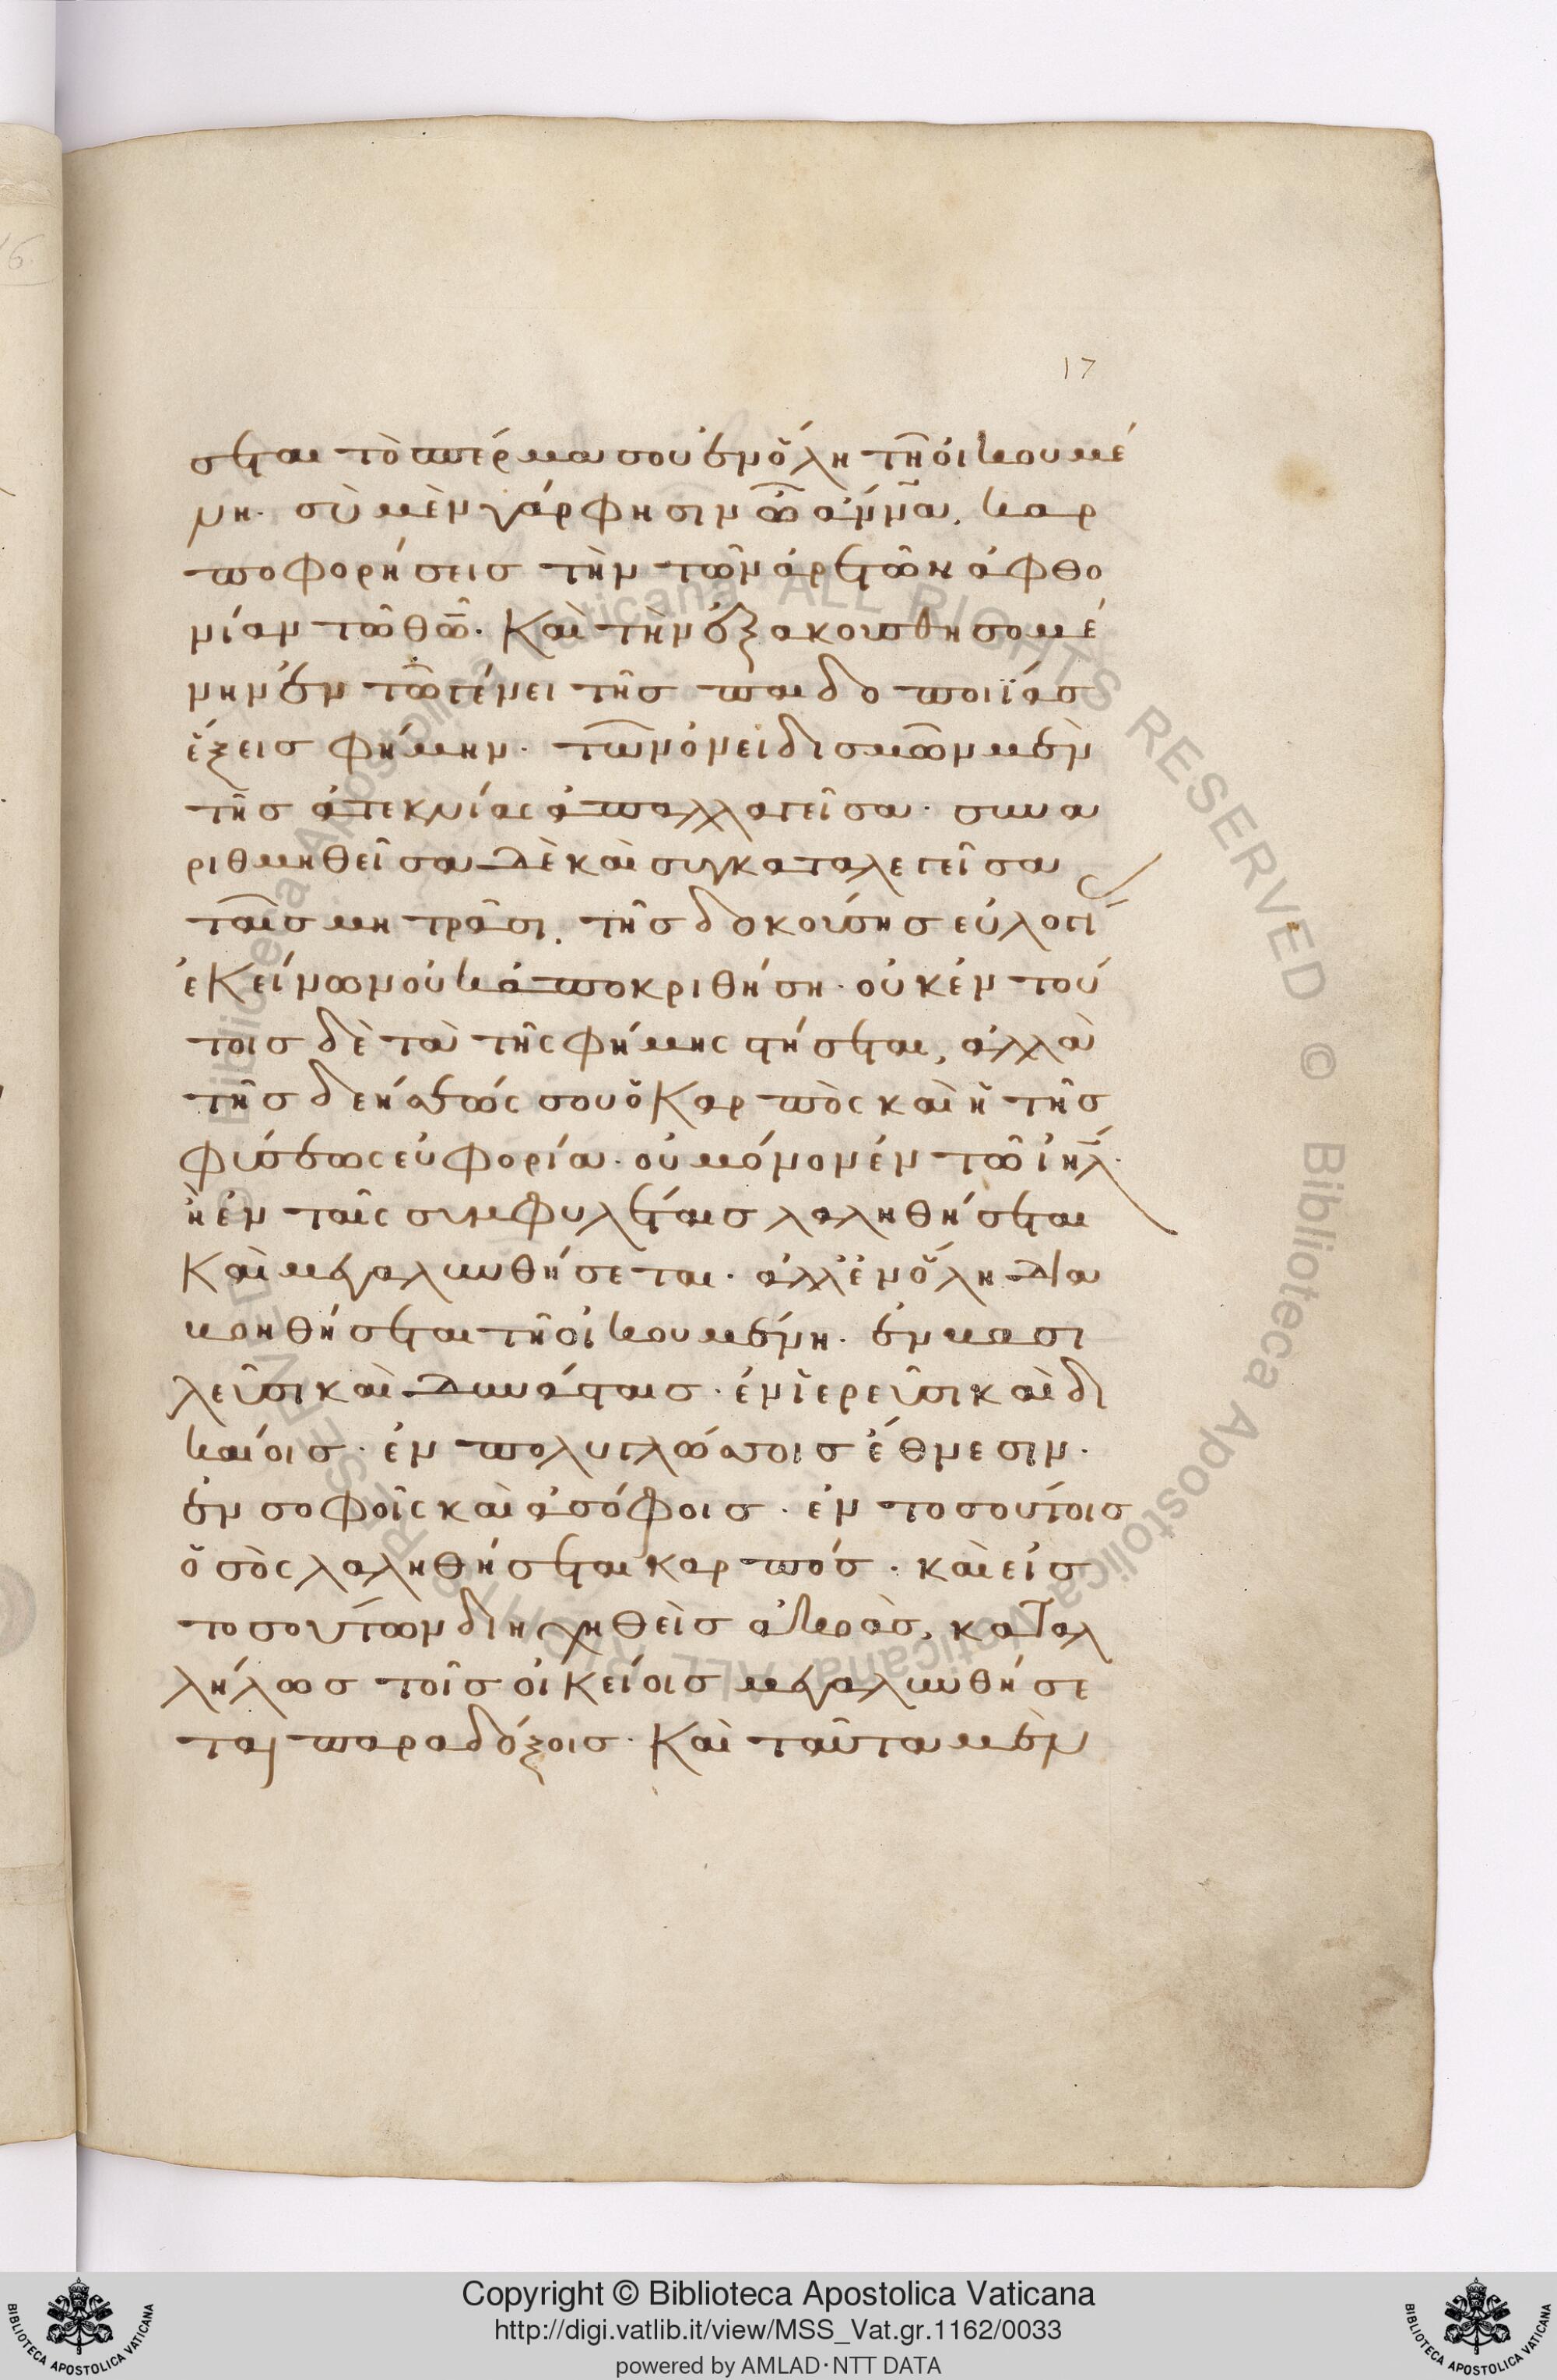 17
σεται τὸ σπέρμα σου ἐν ὅλη τῆ οἰκουμέ
νη. σὺ μὲν γάρ φησιν ὦ ἄννα, καρ
ποφορήσεις τὴν τῶν ἀρετῶν ἀφθο
νίαν τῶ θῶ. Καὶ τὴν ἐξακουσθησομέ
νην ἐν τῶ γένει τῆς παιδοποιΐας
ἕξεις φήμην. τῶν ὀνειδισμῶν μὲν
τῆς ἀτεκνίας ἀπαλλαγεῖσα. συνα
ριθμηθεῖσα δὲ καὶ συγκαταλεγεῖσα
ταῖς μητράσι. τῆς δοκούσης εὐλογί
ἐκείνων οὐκ ἀποκριθήση. οὐκ ἐν τού
τοις δὲ τὰ τῆς φήμης στήσεται, ἀλλὰ
τῆς δεήσεώς σου ὁ Καρπὸς καὶ ἡ τῆς
φύσεως εὐφορία. οὐ μόνον ἐν τῶ ἰηλ.
ἢ ἐν ταῖς συμφυλέταις λαληθήσεται
Καὶ μεγαλυνθήσεται. ἀλλ' ἐν ὅλη δια
κονηθήσεται τῆ οἰκουμένη. ἐν βασι
λεῦσι καὶ δυνάσταις. ἐν ἱερεῦσι καὶ δι
καίοις. ἐν πολυγλώσσοις ἔθνεσιν.
ἐν σοφοῖς καὶ ἀσόφοις. ἐν τοσούτοις
ὁ σὸς λαληθήσεται καρπός. καὶ εἰς
τοσούτων διηχηθεὶς ἀκοὰς, καταλ
λήλως τοῖς οἰκείοις μεγαλυνθήσε
ται παραδόξοις. Καὶ ταῦτα μὲν
Copyright © Biblioteca Apostolica Vaticana
http://digi.vatlib.it/view/MSS_Vat.gr.1162/0033
powered by AMLAD·NTT DATA